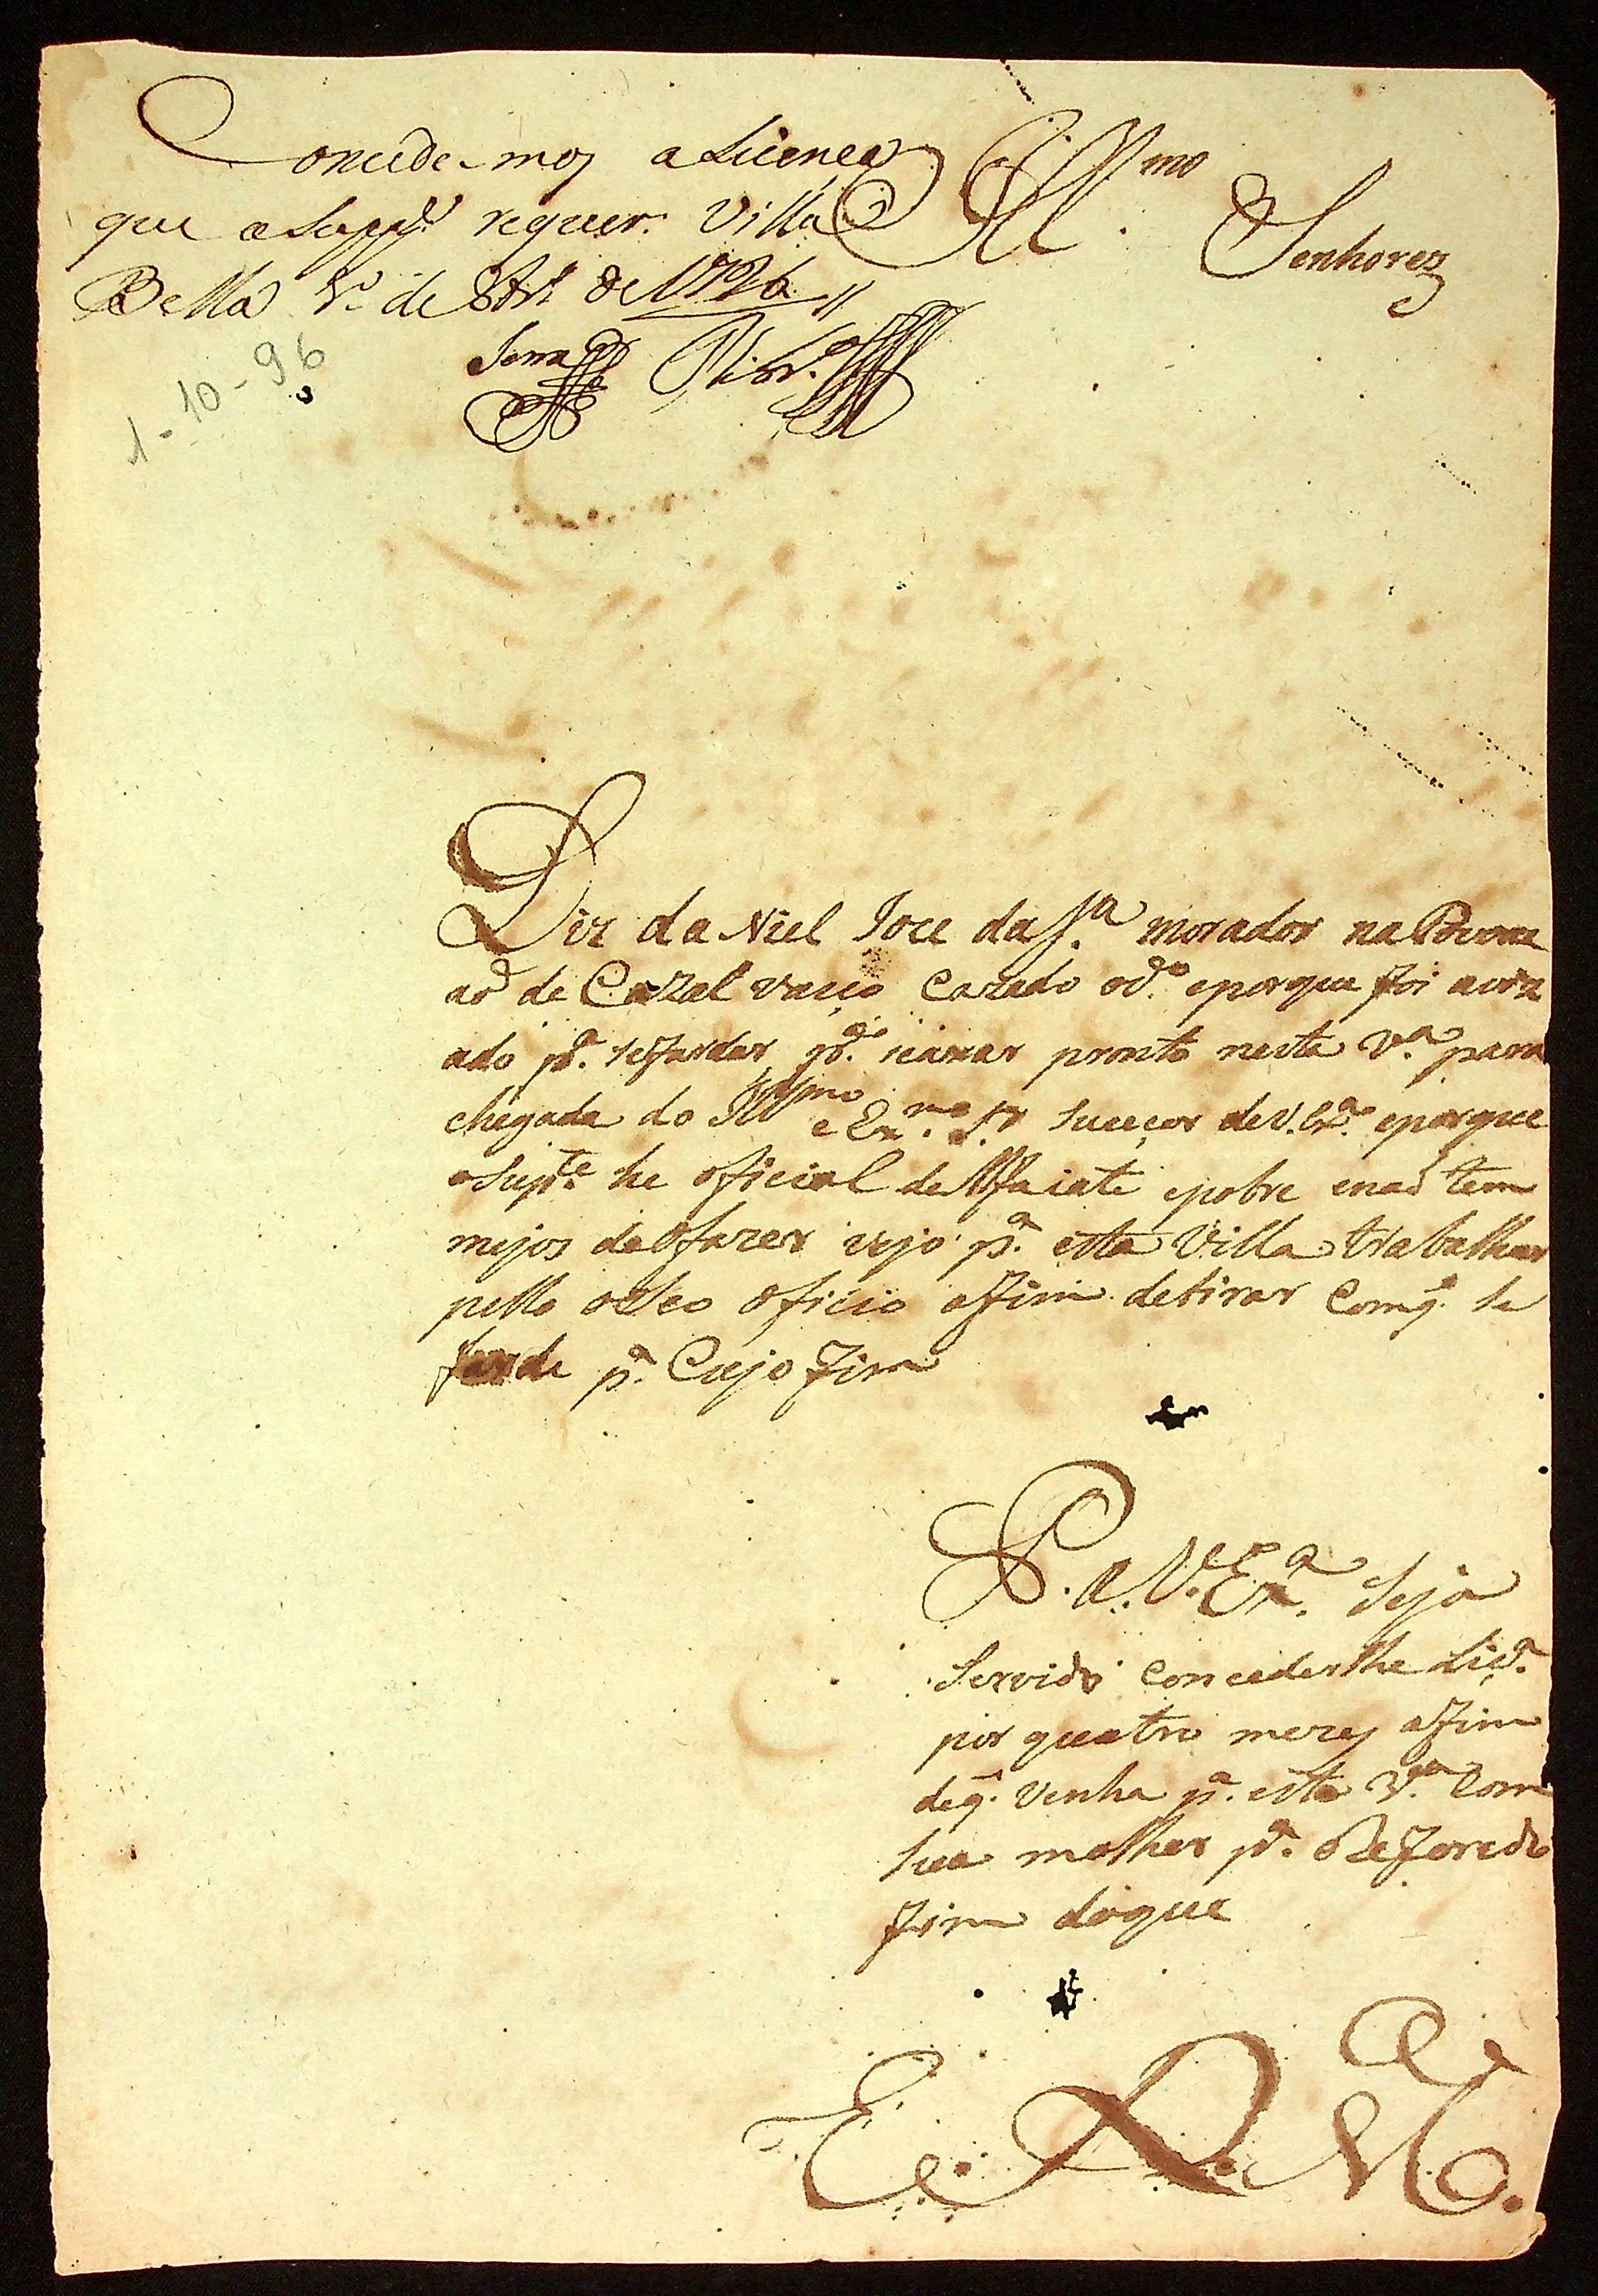 Concede-mos a Licença
que o Supp.e requer. Villa
Bella 1.o de 8br.o de 1796
1-10-96
Ill.mo
Senhores
Diz daNiel Joze da S.a morador na Povoaç
aõ de Cazal vasco Cazado
e porque foi aviz
ado p.a se fardar p.a
pronto nesta V.a para
chegada do Ill.mo e Ex.mo S.r suceçor de V. Ex.a e porque
o Sup.te he oficial de Alfaiate e pobre e naõ tem
mejos de o fazer
p.a esta Villa trabalhar
pello o Seo oficio afim de tirar Com q. se
farde p.a Cujo fim
P. a V. Ex.a Seja
Servido Concederlhe Liç.a
por quatro mezes afim
de q. venha p.a esta V.a Com
sua molher p.a o Referido
fim do que
E. R. M.ce